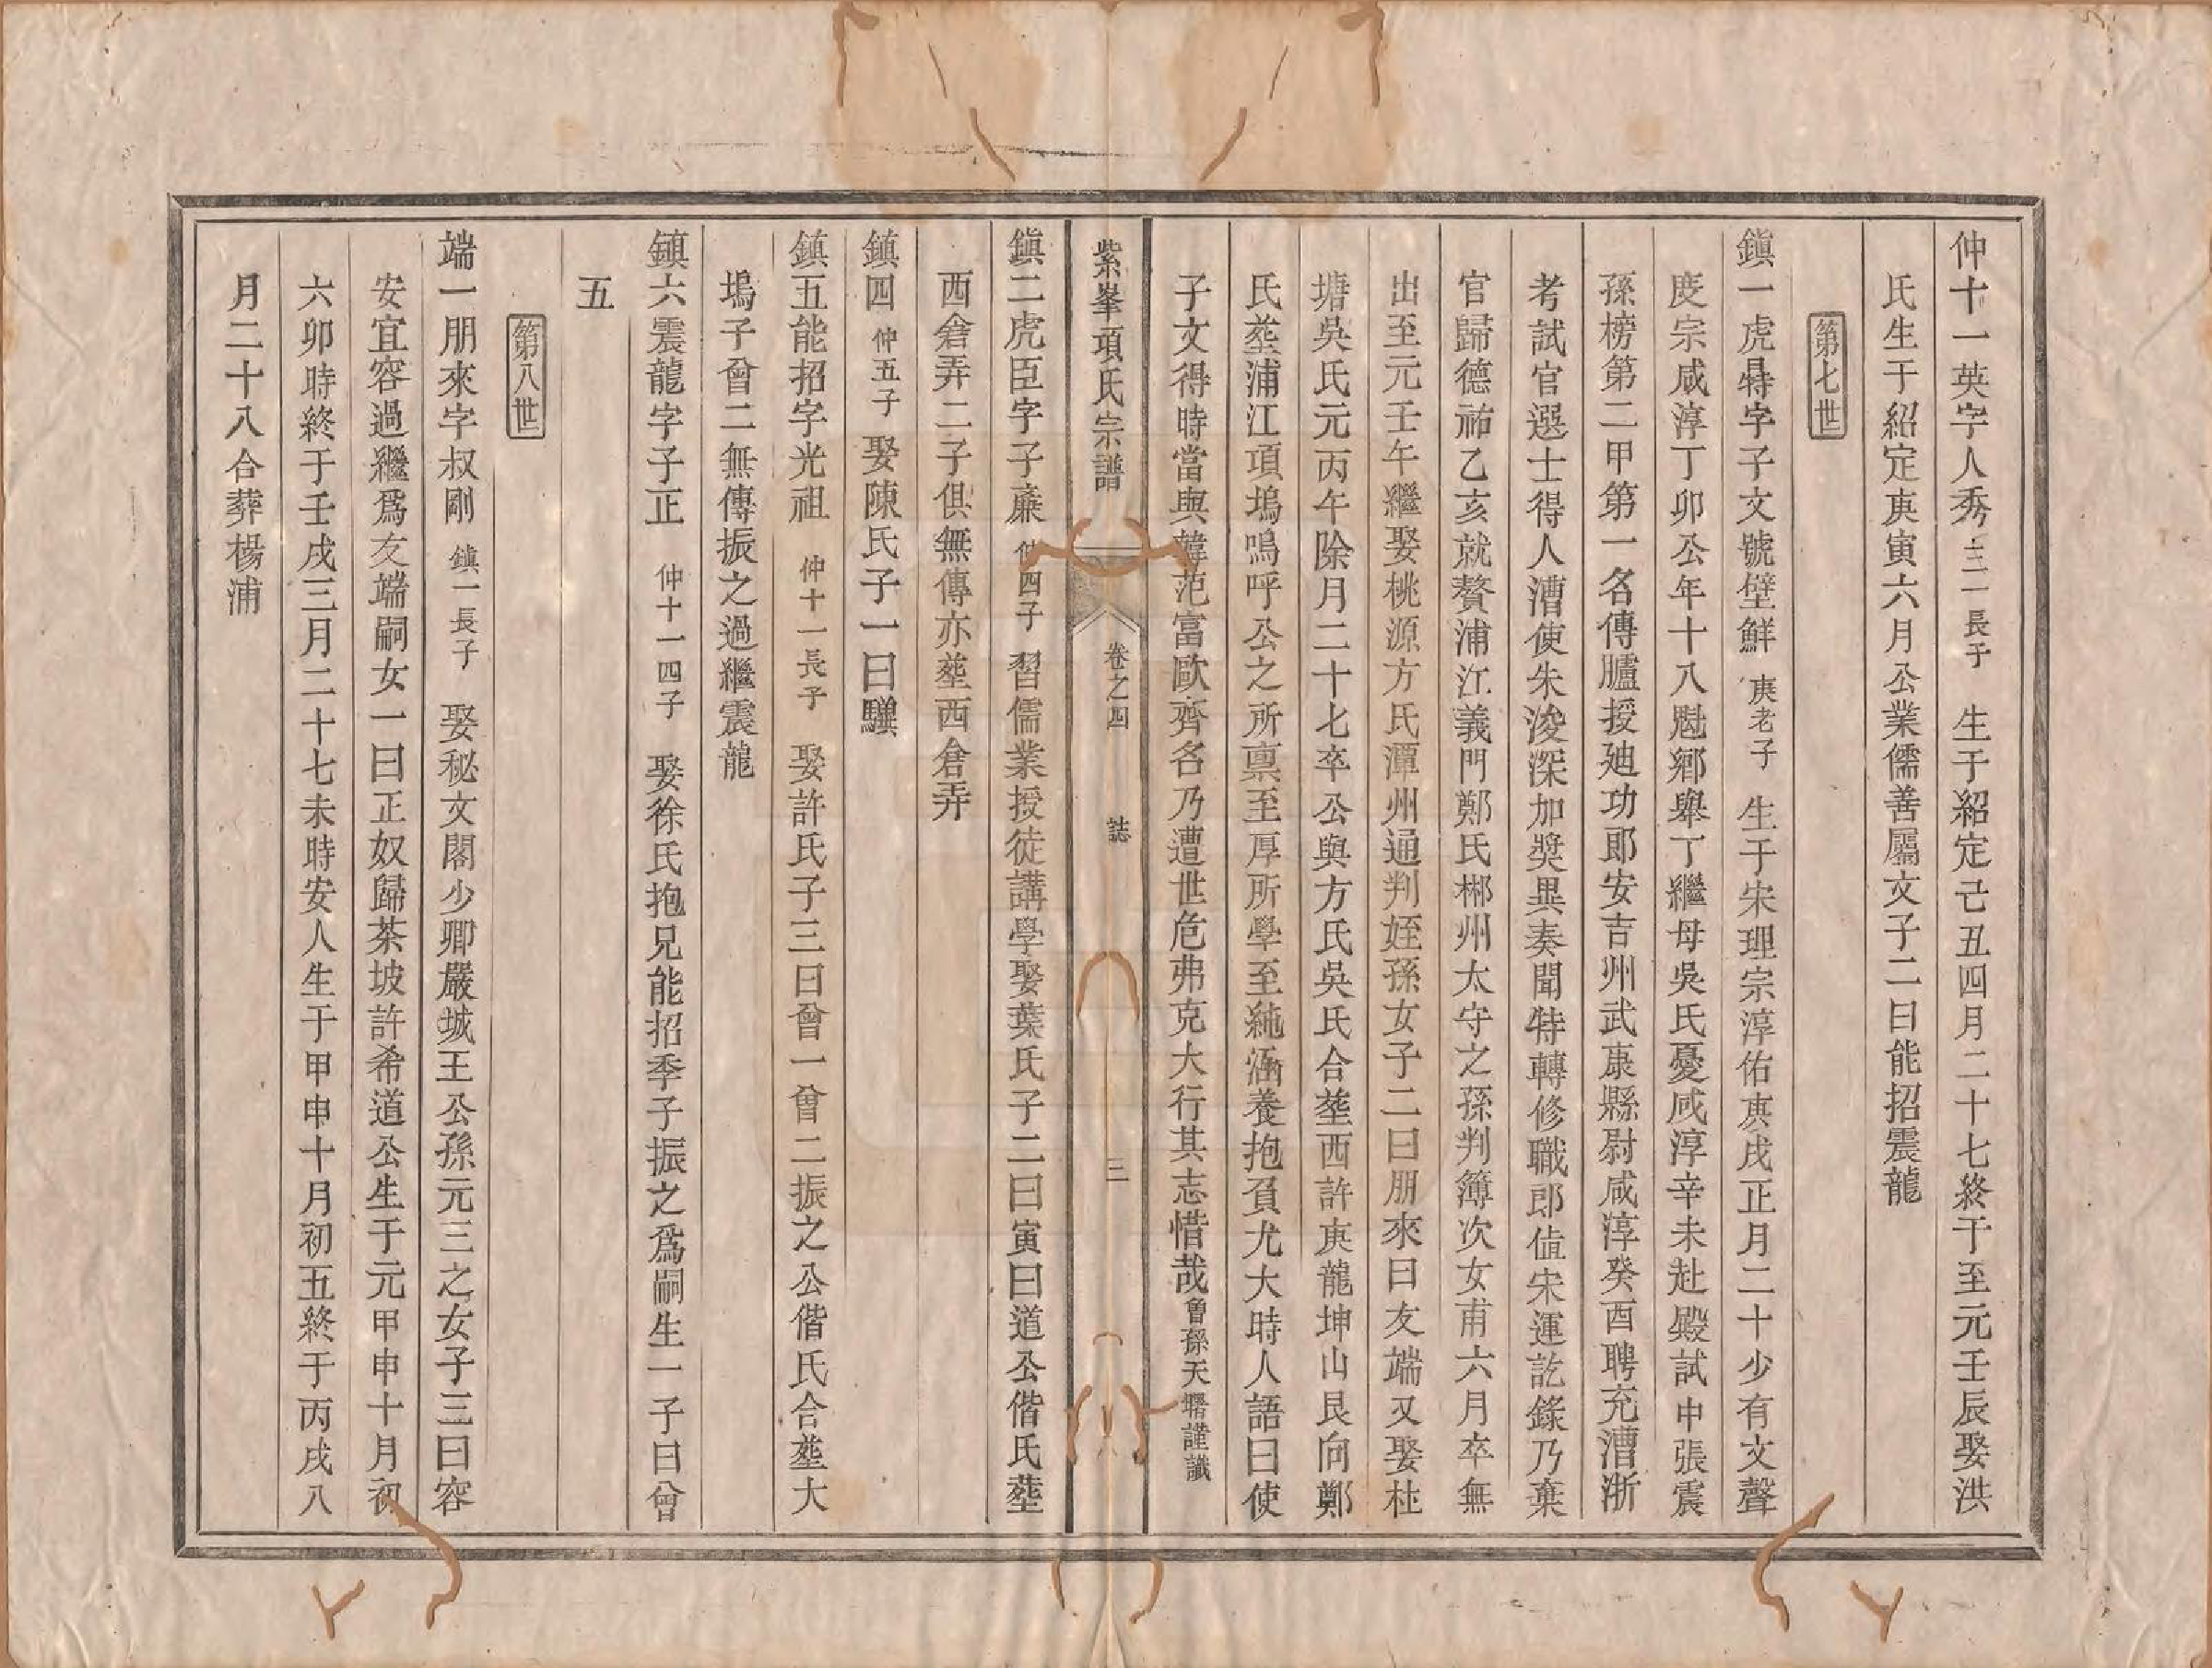 仲十一英字人秀三一長子生于紹定己丑四月二十七終于至元壬辰娶洪
氏生于紹定庚寅六月公業儒善屬文子二曰能招震龍
第七世
鎮一虎字子文號壁鮮庚老子生于宋理宗淳佑庚戌正月二十少有文聲
度宗咸淳丁卯公年十八魁鄉舉丁繼母吳氏憂咸淳辛未赴殿試中張震
孫榜第二甲第一名傳臚授廸功郎安吉州武康縣尉咸淳癸酉聘充漕浙
考試官選士得人漕使朱浚深加奬異奏聞特轉修職郎值宋運訖錄乃棄
官歸德祐乙亥就贅浦江義門鄭氏郴州太守之孫判簿次女甫六月卒無
出至元壬午繼娶桃源方氏潭州通判姪孫女子二曰朋來曰友端又娶杜
塘吳氏元丙午除月二十七卒公與方氏吳氏合塟西許庚龍坤山艮向鄭
氏塟浦江項塢嗚呼公之所禀至厚所學至純涵養抱負尤大時人語曰使
子文得時當與韓范富歐齊名乃遭世危弗克大行其志惜哉曾孫天謹識
紫峯項氏宗譜 卷之四 誌 三
鎮二虎臣字子㢘仲四子習儒業授徒講學娶葉氏子二曰寅曰道公偕氏塟
西倉弄二子俱無傳亦塟西倉弄
鎮四仲五子娶陳氏子一曰驥
鎮五能招字光祖仲十一長子娶許氏子三曰曾一曾二振之公偕氏合塟大
塢子曾二無傳振之過繼震龍
鎮六震龍字子正仲十一四子娶徐氏抱兄能招季子振之爲嗣生一子曰曾
五
第八世
端一朋來字叔剛鎮一長子娶秘文閣少卿嚴城王公孫元三之女子三曰容
安宜容過繼爲友端嗣女一曰正奴歸茶坡許希道公生于元甲申十月初
六卯時終于壬戌三月二十七未時安人生于甲申十月初五終于丙戌八
月二十八合葬楊浦